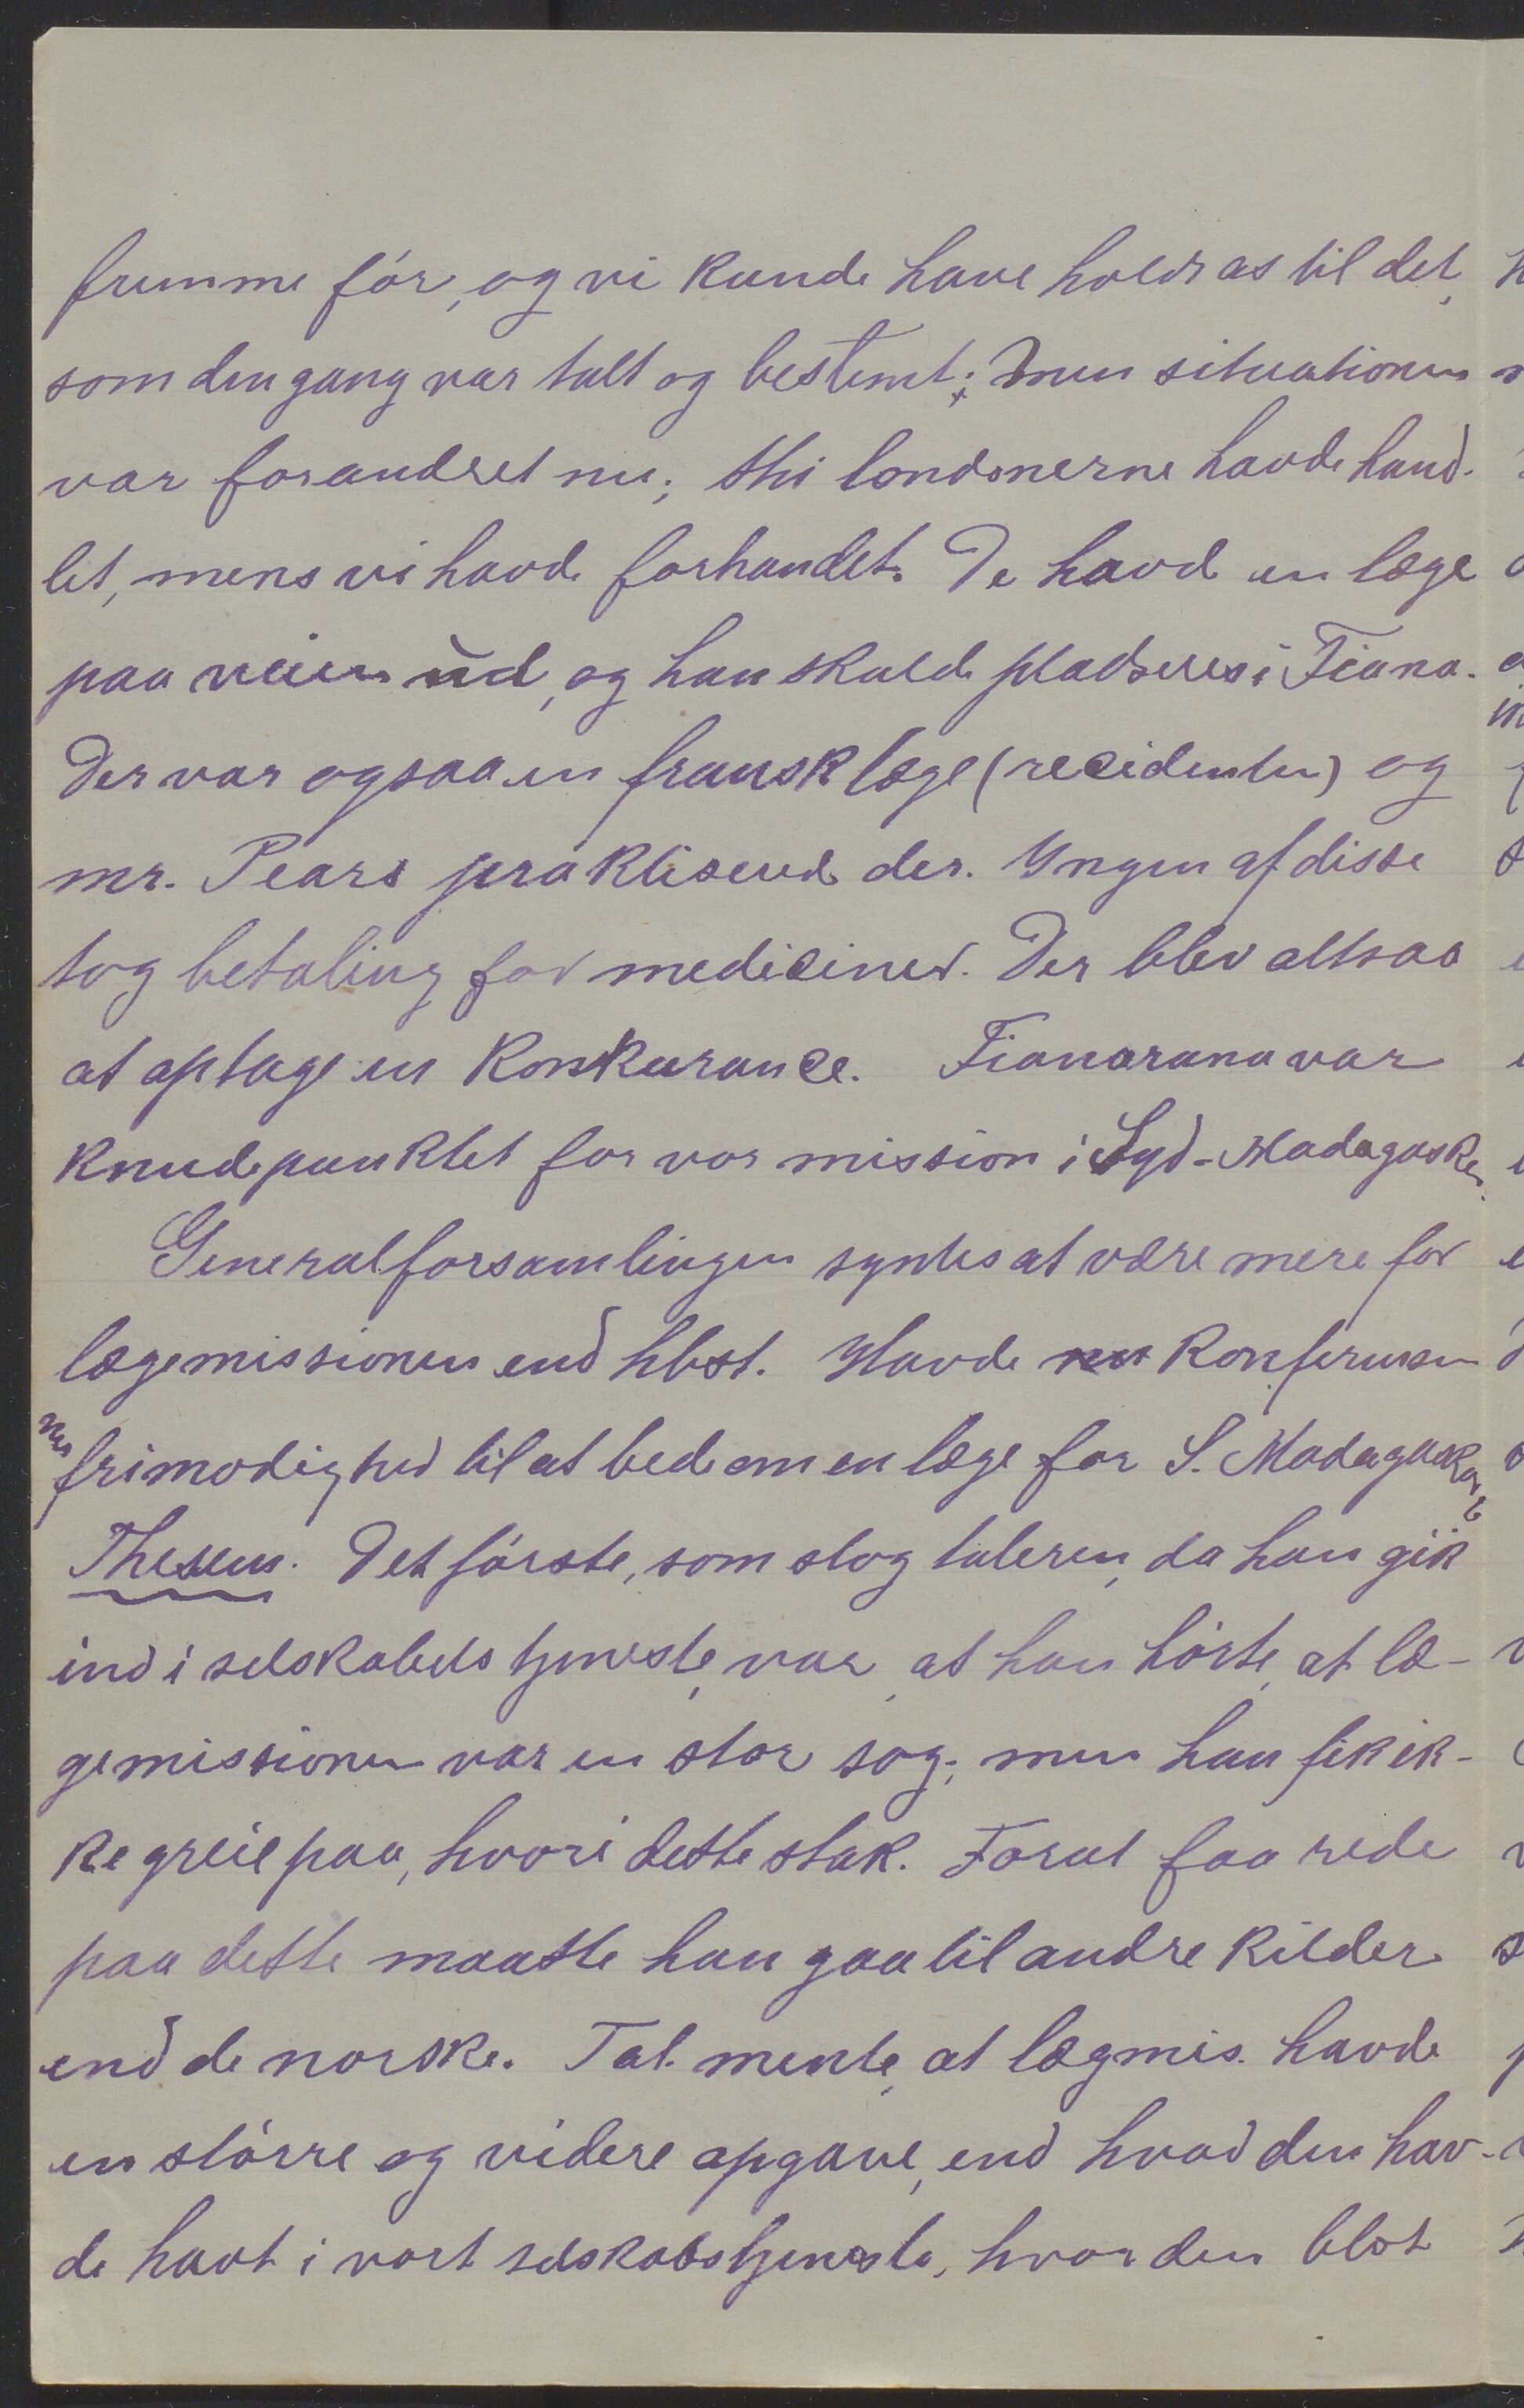 fremme før, og vi kunde have holdt os til det,
som dengang var talt og bestemt; men situationen
var forandret nu; thi londonerne havde hand-
let, mens vi havde forhandlet. De havde en læge
paa veien ud, og han skulde pladseres i Fiana.
Der var ogsaa en fransk læge (recidenten) og
mr. Pears praktiserede der. Yngen af disse
tog betaling for mediciner. Der blev altsaa
at optage en konkurance. Fianarana var
knudepunktet for vor mission i Syd-Madagaskar.
Generalforsamlingen syntes at være mere for
lægemissionen end hbst. Havde konferensen
nu frimodighed til at bede om en læge for S. Madagaskar?
Thesen. Det første, som slog taleren, da han gik
ind i selskabets tjeneste, var, at han hørte, at læ-
gemissionen var en stor sag; men han fik ik-
ke greie paa, hvori dette stak. For at faa rede
paa dette maatte han gaa til andre kilder
end de norske. Tal. mente, at lægmis. havde
en større og videre opgave, end hvad den hav-
de havt i vort selskabs tjeneste, hvor den blot